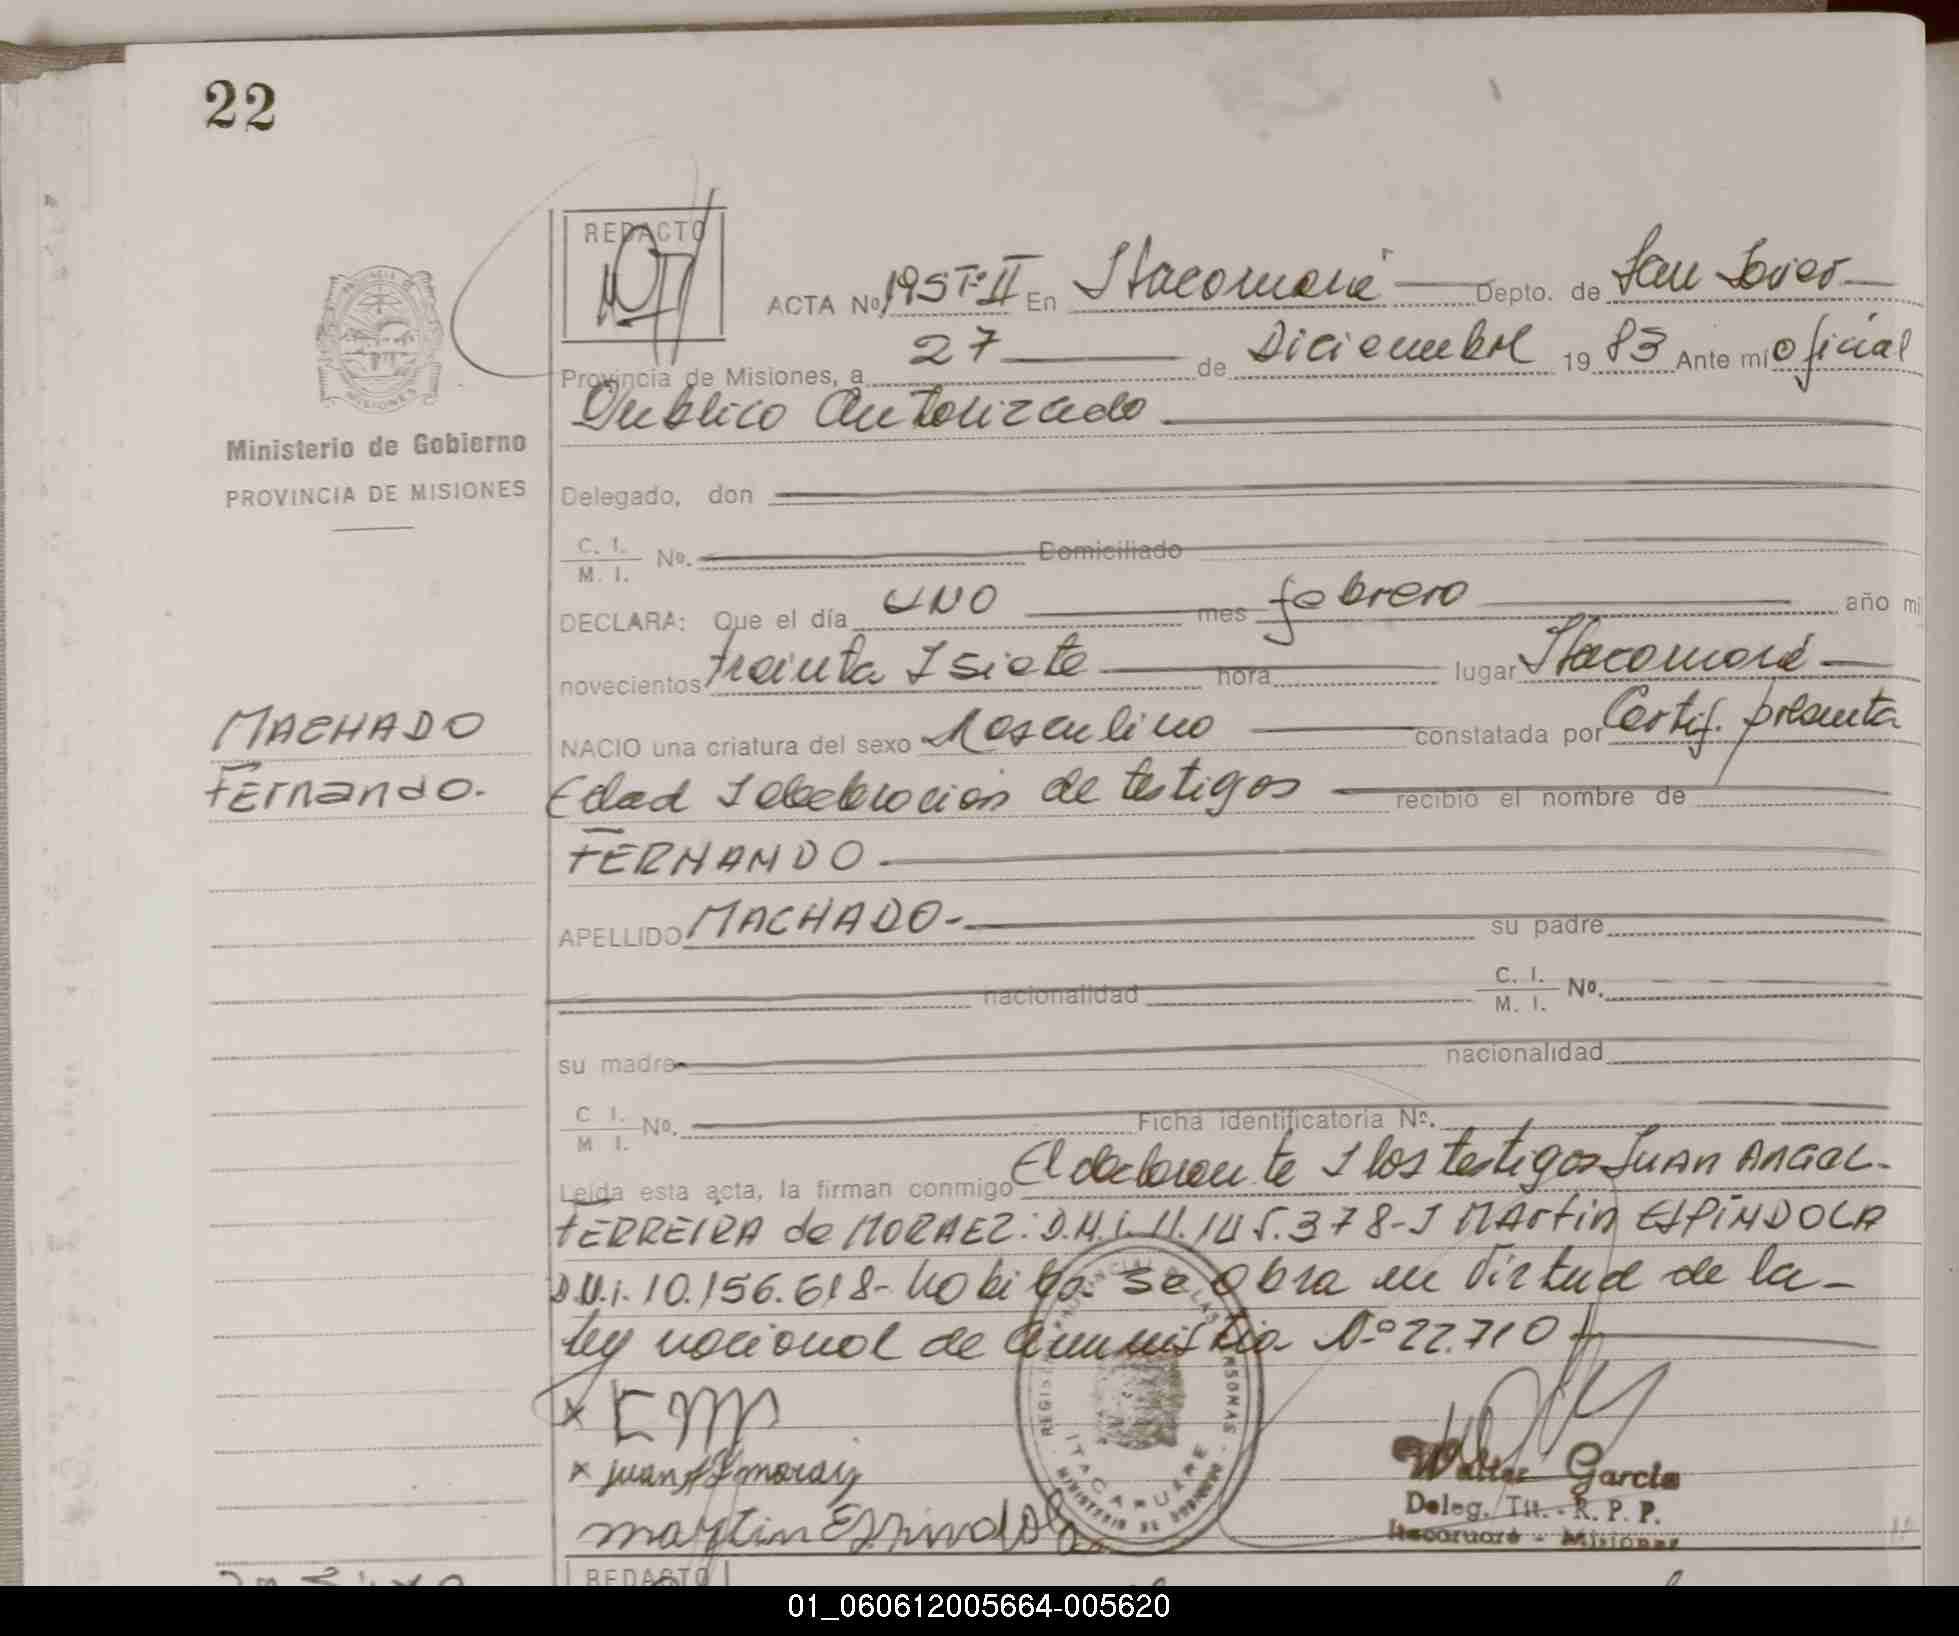 22
REDACTO
ACTA Nº 195 Tº II En Itacaruaré Depto. de San Javier
Provincia de Misiones, a 27 de Diciembre 19 83 Ante mi oficial
Publico Autorizado
PROVINCIA DE MISIONES
Ministerio de Gobierno
PROVINCIA DE MISIONES
Delegado, don
C. I.
M. I. Nº. Domiciliado
DECLARA: Que el día UNO mes febrero año mi
novecientos treinta I siete hora lugar Itacaruaré
MACHADO
Fernando.
NACIO una criatura del sexo Masculino constatada por Certif. presunta
Edad I declaracion de testigos recibió el nombre de
FERNANDO
APELLIDO MACHADO- su padre
nacionalidad C. I.
M. I. Nº.
su madre nacionalidad
C I.
M I. Nº. Ficha identificatoria Nº.
Leída esta acta, la firman conmigo El declarante I los testigos JUAN ANGEL-
FERREIRA de MORAEZ: D.N.i. 11.145.378- I MARtin ESPíNDOLA
D.N.i. 10.156.618- se obra en virtud de la-
ley nacional de amnistia Nº 22.710
x
x juan moray
martin Espindola
ITACARUARE
MINISTERIO DE GOBIERNO
Walter Garcia
Deleg. Tit. - R. P. P.
Itacaruaré - Misiones
REDACTO
01_060612005664-005620